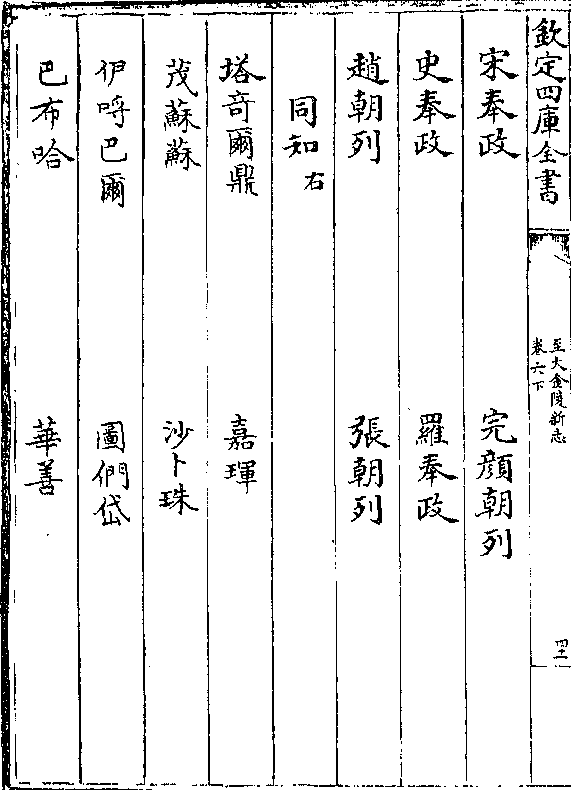 欽定四庫全書
至大金陵新志
卷六下
四十一
宋奉政　完顔朝列
史奉政　羅奉政
趙朝列　張朝列
同知右
塔奇爾鼎　嘉琿
茂蘇蘇　沙卜珠
伊哷巴爾　圖們岱
巴布哈　華善